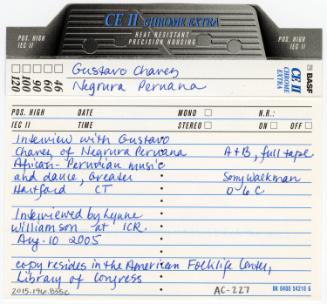 CE II CHROME EXTRA
POS. HIGH
IEC II
HEAT RESISTANT
PRECISION HOUSING
POS. HIGH
IEC II
120 100 90 60 46
Gustavo Chavez
Negrura Peruana
BASF
CE II
CHROME
EXTRA
POS. HIGH DATE MONO N.R.:
IEC II TIME STEREO ON OFF
Interview with Gustavo
Chavez of Negrura Peruana A+B, full tape
African-Peruvian music
and dance, Greater Sony Walkman
Hartford CT D-6C
Interviewed by Lynne
Williamson at ICR.
Aug. 10 2005
copy resides in the American Folklife Center,
Library of Congress
2015.196.855c AC-227